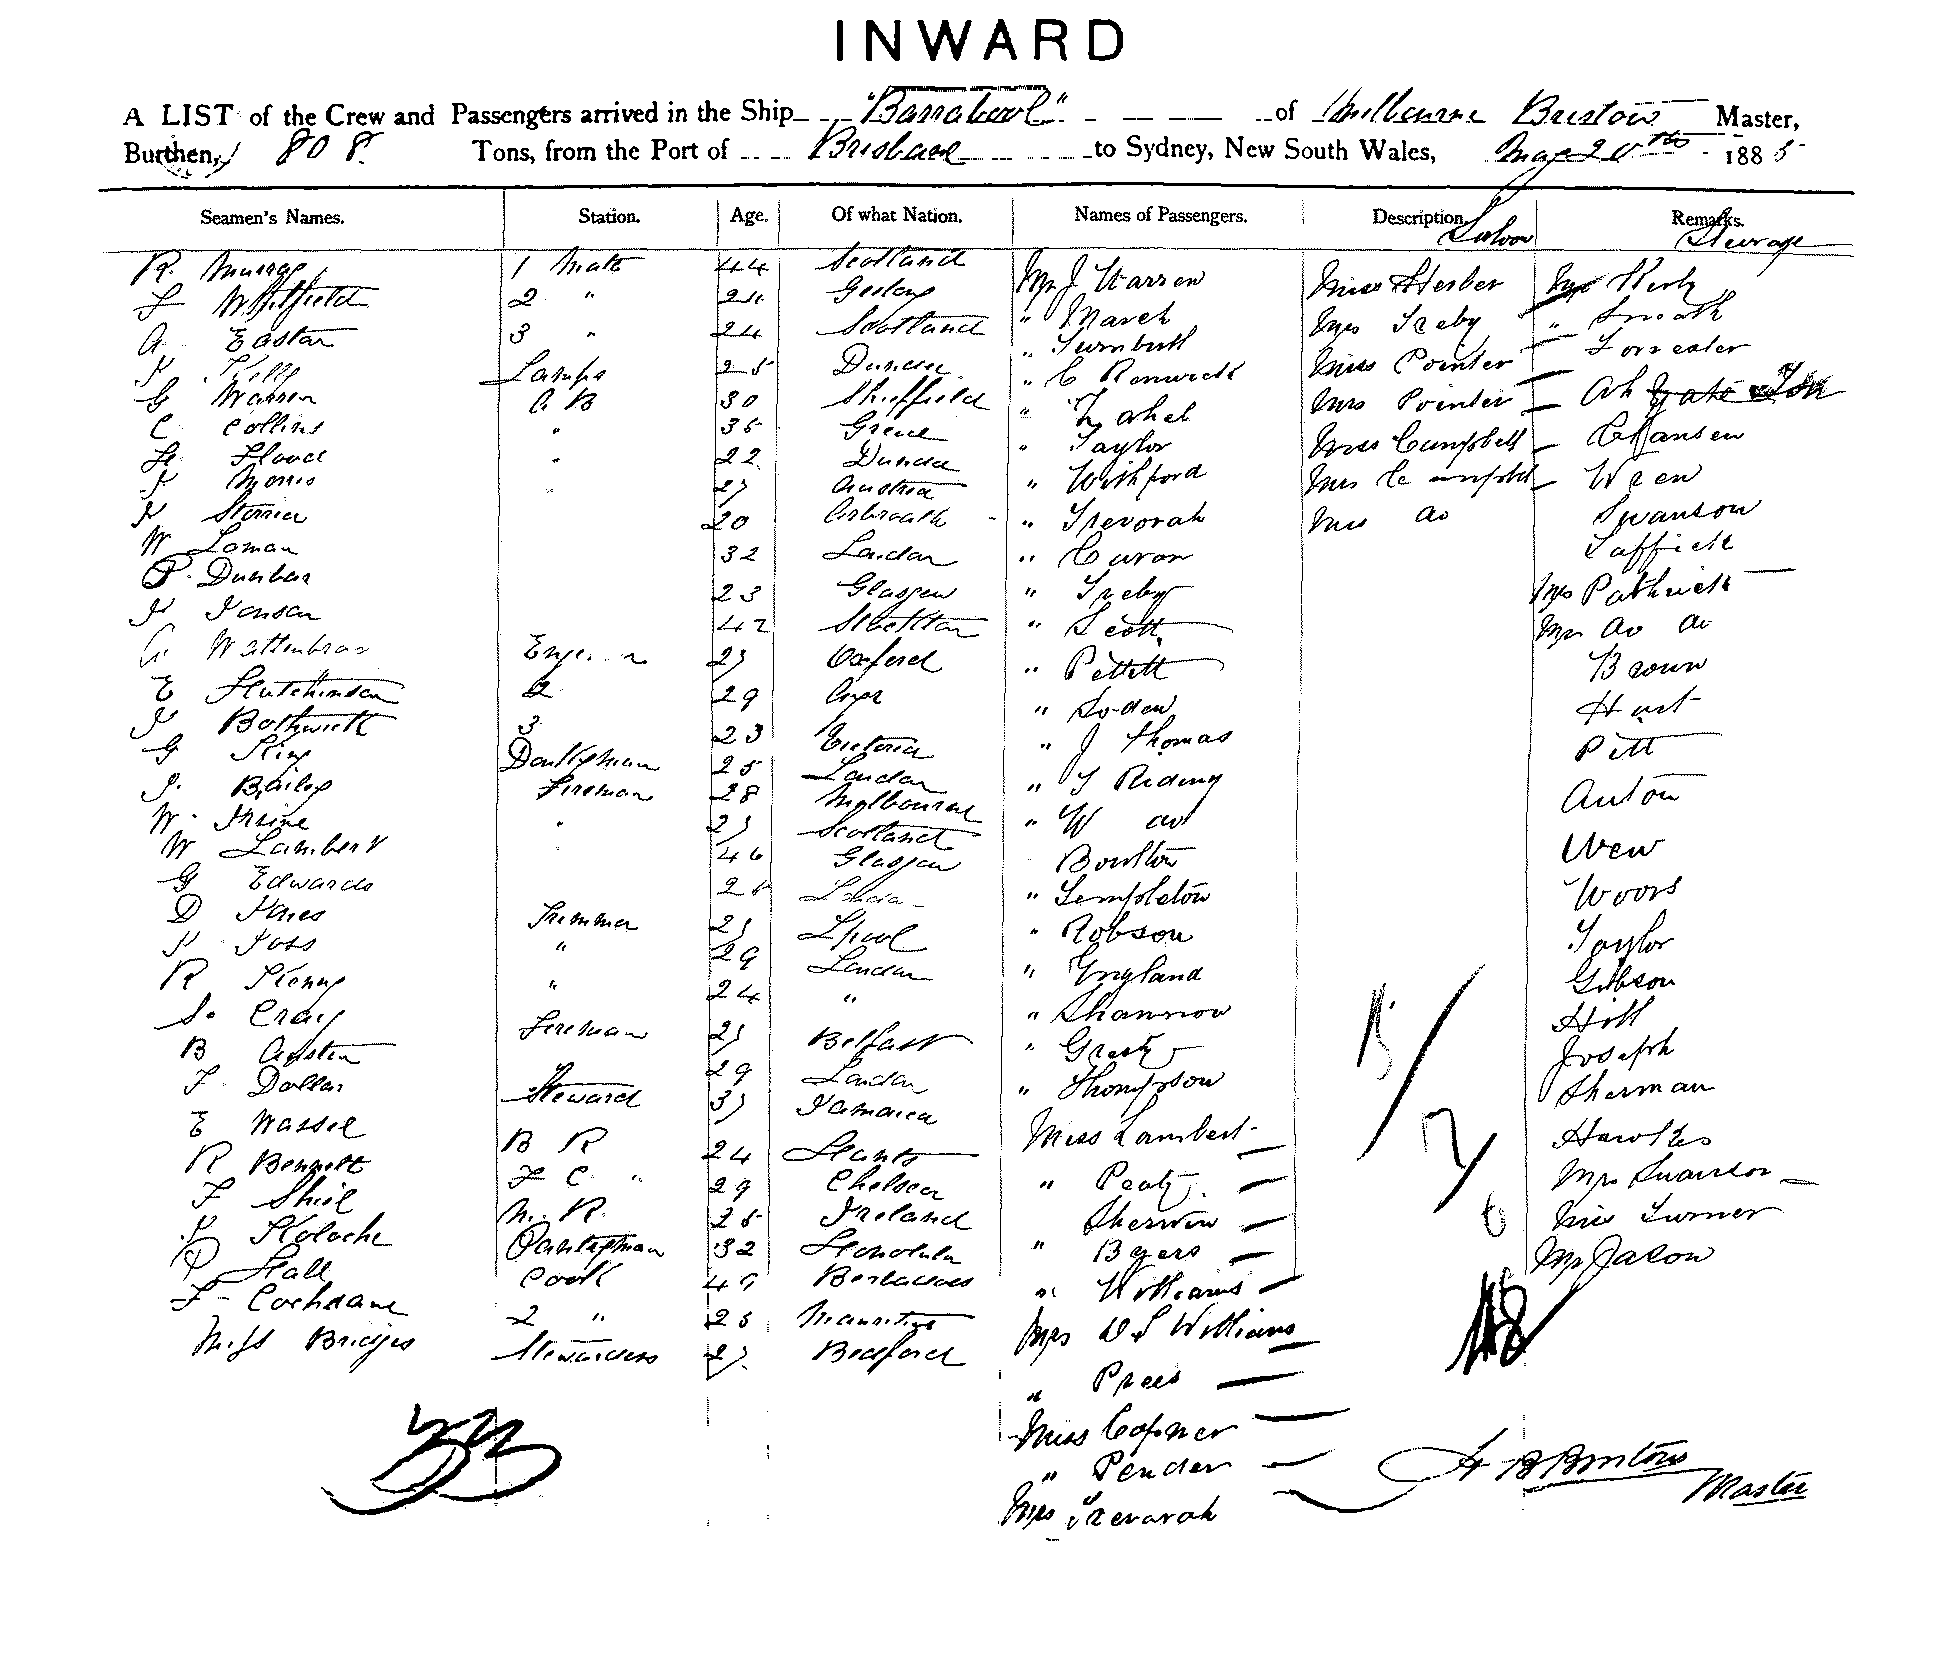 INWARD
A LIST of the Crew and Passengers arrived in the Ship "Barrabool" of Melbourne Bristow Master,
Burthen, 808 Tons, from the Port of Brisbane to Sydney, New South Wales, May 20th 1885
Seamen's Names. Station. Age. Of what Nation. Names of Passengers. Description. Saloon Remarks. Steerage
R. Murray 1 Mate 44 Scotland Mr J Warren Miss Herber Mr Kerly
Whitfield 2 " 24 " March Mrs Treby " Smith
A. Eastar 3 " 24 Scotland " Turnbull Miss Pointer Forrester
J Kelly Lamps 25 Dundee " C Renwick Mrs Pointer Ah
G Warren A B 30 Sheffield " Zahel Miss Campbell C Hansen
C Collins " 35 Greece " Taylor Mrs Campbell Wren
H Flood " 22 Dundee " Withford Mrs do Swanson
J Morris " 27 Austria " Trevorah Saffick
J 20 Arbroath " Caron Mrs Pathrick
W Loman 32 London " Treby Mr do do
P. Dunbar 23 Glasgow " Scott Brown
J Jonson 42 Stockton " Pettett Hart
27 Oxford " Soden Pitt
E Hutchinson 2 29 Ayr " J Thomas Anton
J Bothwick 3 23 Victoria " T Riding Wew
G King Donkyman 25 London " W do Woors
J. Bailey Fireman 28 Melbourne Boulton Taylor
W. Irvine " 27 Scotland " Templeton Gibson
W Lambert 46 Glasgow " Robson Hill
G Edwards 25 " England Joseph
D Jones Trimmer 27 Lpool " Shannon Sherman
J Joss " 29 London " Hawkes
R Kenny " 24 " " Thompson Mrs Swanson
S. Craig Fireman 27 Belfast Miss Lambert Miss Turner
B Austen 29 London " Mr Jason
F Dollar Steward 37 Jamaica Sherwin
E Wassel B R 24 Hants " Byers
R Bennett F C " 29 Chelsea " Williams
F Shiel M. R. 25 Ireland Mrs W S Williams
J Koloche Pantryman 32 Honolulu " Prees
P Hall Cook 49 Barbadoes Miss Copner
F Cochdane 2 " 25 Mauritius " Pender
Miss Bridges Stewardess 27 Bedford Mrs Trevarah
15
7
33
H B Bristow
Master